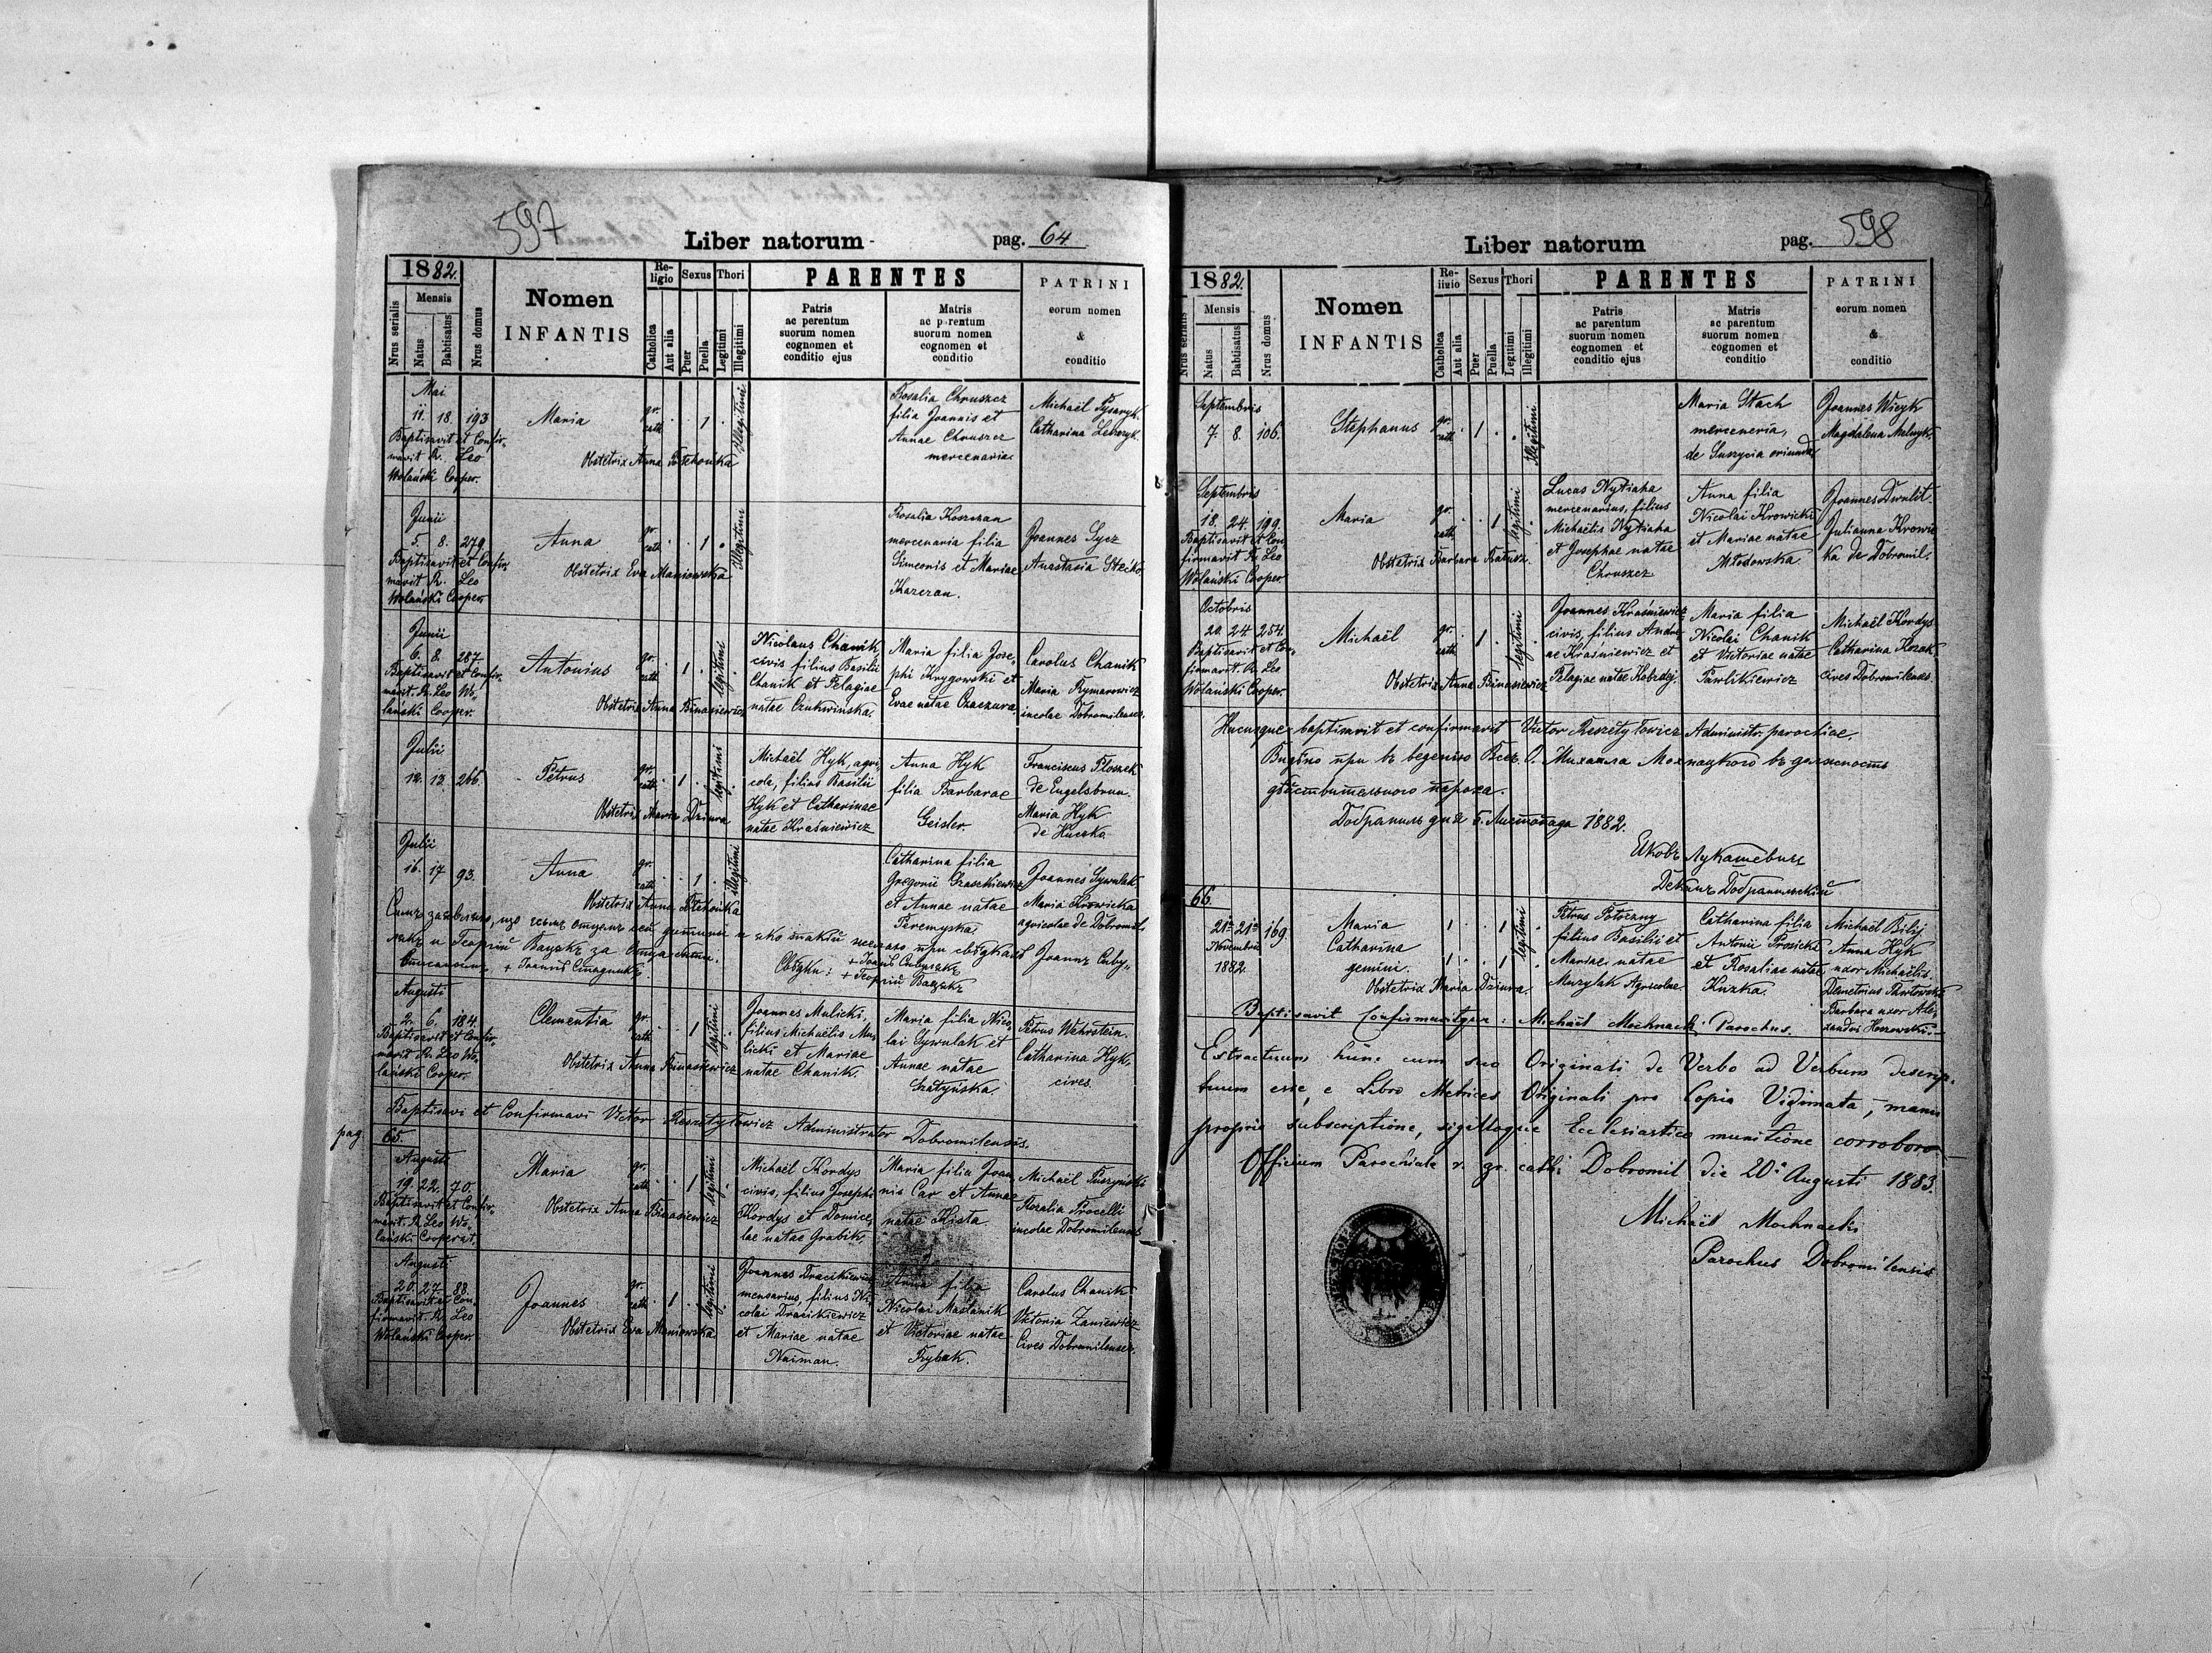 597
Liber natorum
pag. 64
1882.
Nrus serialis
Mensis
Natus
Babtisatus
Nrus domus
Nomen
INFANTIS
Re-
ligio
Catholica
Aut alia
Sexus
Puer
Puella
Thori
Legitimi
Illegitimi
PARENTES
Patris
ac perentum
suorum nomen
cognomen et
conditio ejus
Matris
ac p rentum
suorum nomen
cognomen et
conditio
PATRINI
eorum nomen
&
conditio
Mai
11. 18. 193
Baptisavit et Confir-
mavit R. Leo
Wolański Cooper.
Maria
gr.
cath
1
Illegitimi
Obstetrix Anna
Rosalia Chruszcz
filia Joannis et
Annae Chruszcz
mercenaria.
Michaël Pysaryk.
Catharina
Junii
5. 8. 279
Baptisavit et Confir-
mavit R. Leo
Wolański Cooper.
Anna
gr.
cath.
1
Illegitimi
Obstetrix Eva Maniowska
Rosalia Koszczan
mercenaria filia
Simeonis et Mariae
Joannes Sycz
Anastasia Stecko
Junii
6. 8. 287
Baptisavit et Confir-
mavit R. Leo Wo-
lański Cooper.
Antonius
gr.
cath.
1
legitimi
Obstetrix Anna Binasiewicz
Nicolaus Chanik,
civis filius Basilii
Chanik et Pelagiae
natae Czukwińska.
Maria filia Jose-
phi Krygowski et
Evae natae Czaczura
Carolus Chanik
Maria Rymarowicz
incolae Dobromilenses.
Julii
12. 13. 266.
Petrus
gr.
cath.
1
legitimi
Obstetrix Maria Dziura
Michaël Hyk, agri-
cola, filius Basilii
Hyk et Catharinae
natae Kraśniewicz
Anna Hyk
filia Barbarae
Geisler
Franciscus Ploszek
de Engelsbrun.
Maria Hyk
de Huczko
Julii
16. 17 93.
Anna
gr.
cath.
1
illegitimi
Obstetrix Anna
Catharina filia
Gregorii
et Annae natae
Peremyska.
Joannes Sywulak
Maria Krowicka
agricolae de Dobromil.
Augusti
2. 6. 184.
Baptisavit et Confir-
mavit R. Leo Wo-
lański Cooper.
Clementia
gr.
cath.
1
legitimi
Obstetrix Anna Binasiewicz
Joannes Mulicki,
filius Michaëlis Mu-
licki et Mariae
natae Chanik.
Maria filia Nico-
lai Sywulak et
Annae natae
Petrus Wehrstein.
Catharina Hyk,
cives.
Baptisavi et Confirmavi Victor Reszetyłowicz Administrator Dobromilensis.
pag. 65.
Augusti
19. 22. 70.
Baptisavit et Confir-
mavit R. Leo Wo-
lański Cooperat.
Maria
gr.
cath.
1
legitimi
Obstetrix Anna Binasiewicz
Michaël Kordys
civis, filius Josephi
Kordys et Domicel-
lae natae Grabik.
Maria filia Joan-
nis Car et Annae
natae Kista
Michaël Puszyński
Rosalia Procelli
incolae Dobromilenses
Augusti
20. 27. 88.
Baptisavit et Con-
firmavit R. Leo
Wolański Cooper.
Joannes
gr.
cath.
1
legitimi
Obstetrix Eva Maniowska
Joannes Dracikiewicz
mensarius, filius Ni-
colai Dracikiewicz
et Mariae natae
Naiman.
Anna filia
Nicolai Maślanik
et Victoriae natae
Rybak.
Carolus Chanik
Viktoria Zaniewicz
Cives Dobromilenses.
Liber natorum
pag. 598
1882.
Nrus serialis
Mensis
Natus
Babtisatus
Nrus domus
Nomen
INFANTIS
Re-
ligio
Catholica
Aut alia
Sexus
Puer
Puella
Thori
Legitimi
Illegitimi
PARENTES
Patris
ac parentum
suorum nomen
cognomen et
conditio ejus
Matris
ac parentum
suorum nomen
cognomen et
conditio
PATRINI
eorum nomen
&
conditio
Septembris
7. 8. 106.
Stephanus
gr.
cath.
1
Illegitimi
Maria Stach
merceneria,
de oriunda
Joannes Wicyk
Magdalena Melnyk.
Septembris
18. 24. 199.
Baptisavit et Con-
firmavit R. Leo
Wolański Cooper.
Maria
gr.
cath.
1
legitimi
Obstetrix Barbara
Lucas Nytiaha
mercenarius, filius
Michaëlis Nytiaha
et Josephae natae
Chruszcz
Anna filia
Nicolai Krowicki
et Mariae natae
Młodowska
Joannes Dwulit.
Julianna Krowic-
ka de Dobromil.
Octobris
20. 24. 254.
Baptisavit et Con-
firmavit R. Leo
Wolański Cooper.
Michaël
gr.
cath.
1
legitimi
Obstetrix Anna Binasiewicz
Joannes Kraśniewicz
civis, filius Andre-
ae Kraśniewicz et
Pelagiae natae Kobrdej.
Maria filia
Nicolai Chanik
et Victoriae natae
Pawlikiewicz
Michaël Kordys
Catharina Kozak.
cives Dobromilenses.
Hucusque baptisavit et confirmavit Victor Reszetyłowicz Administr. parochiae.
Видѣно при въведенію Всеч. О. Михаила Мохнацкого въ должность
дѣйствительного пароха.
Добромиль дня 5. Листопада 1882.
Яковъ Лукашевичъ
Деканъ Добромильскій
66.
21a 21a 169
Novembris
1882.
Maria
Catharina
gemini.
1 1
1 1
legitimi
Obstetrix Maria Dziura.
Petrus Potoczny
filius Basilii et
Mariae natae
Muzylak Agricolae.
Catharina filia
Antonii Prosicki
et Rosaliae natae
Huzka.
Michaël Bilij
Anna Hyk
uxor Michaëlis.
Demetrius Pawłowski
Barbara uxor Ale-
xandri Hoszowski.
Baptisavit Confirmavitque: Michaël Mochnacki Parochus.
Extractum hunc cum suo Originali de Verbo ad Verbum descrip-
tum esse, e Libro Metrices Originali pro Copia Vidimata, manu
propria subscriptione, sigilloque Ecclesiastico munitione corroboro
Officium Parochiale r. gr. cath. Dobromil die 20a Augusti 1883.
Michaël Mochnacki
Parochus Dobromilensis